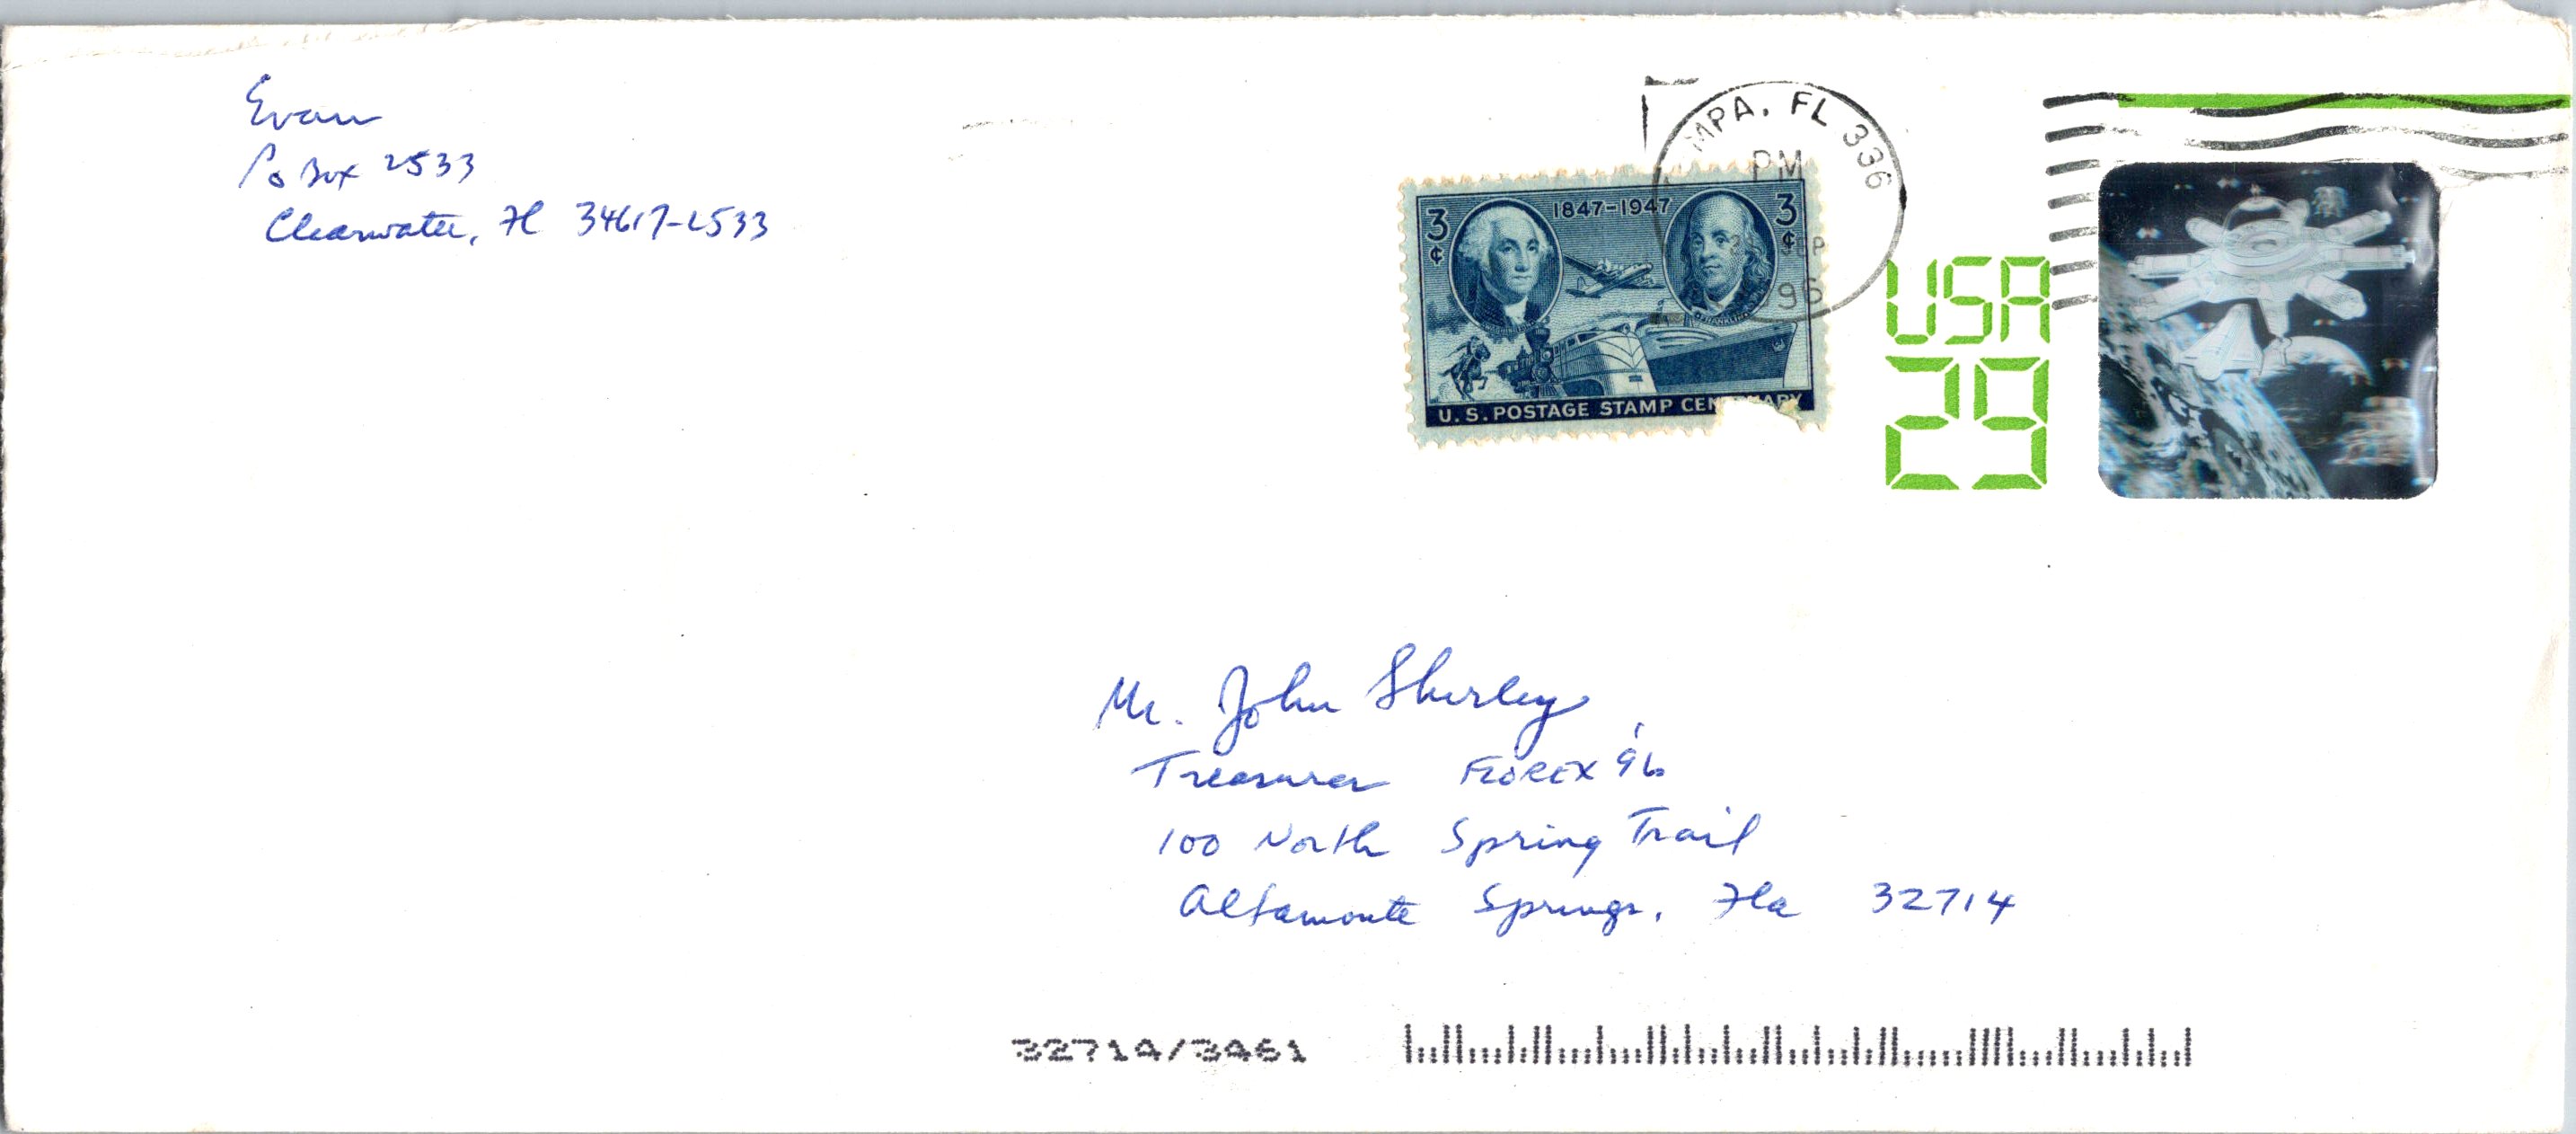 Evan
Po Box 2533
Clearwater, Fl 34617-2533
MPA, FL 336
PM
SEP
96
3¢
1847-1947
3¢
U.S. POSTAGE STAMP CEN ARY
USA
29
Mr. John Shirley
Treasurer FLOREX '96
100 North Spring Trail
Altamonte Springs, Fla 32714
32714/3461